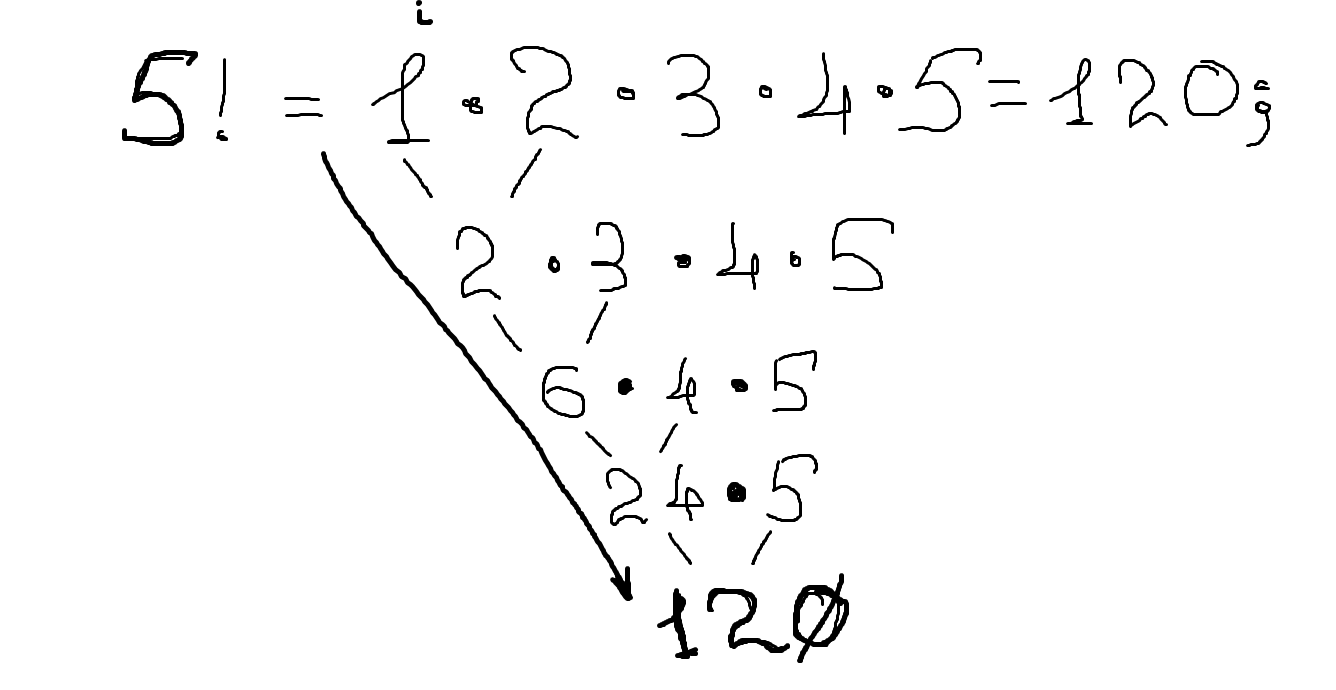 i
5! = 1 · 2 · 3 · 4 · 5 = 120;
2 · 3 · 4 · 5
6 · 4 · 5
24 · 5
120